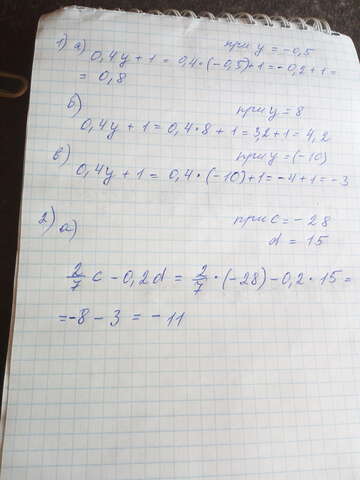 1) а) при у = -0,5
0,4у + 1 = 0,4·(-0,5)+1 = -0,2+1 =
= 0,8
б) при у = 8
0,4у + 1 = 0,4·8 + 1 = 3,2+1 = 4,2
в) при у = (-10)
0,4у + 1 = 0,4·(-10)+1 = -4+1 = -3
2) а) при с = -28
d = 15
2/7 с - 0,2d = 2/7·(-28) - 0,2·15 =
= -8 - 3 = -11